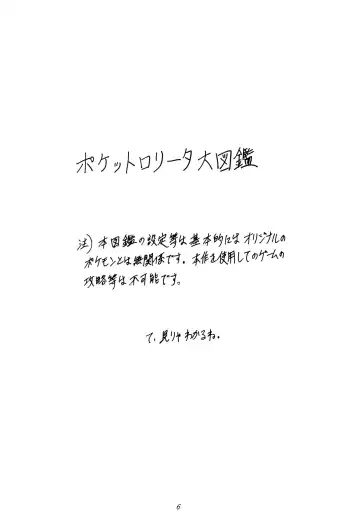 ポケットロリータ大図鑑
注）本図鑑の設定等は基本的にはオリジナルの
ポケモンとは無関係です。本作を使用してのゲームの
攻略等は不可能です。
て、見りゃわかるね。
6